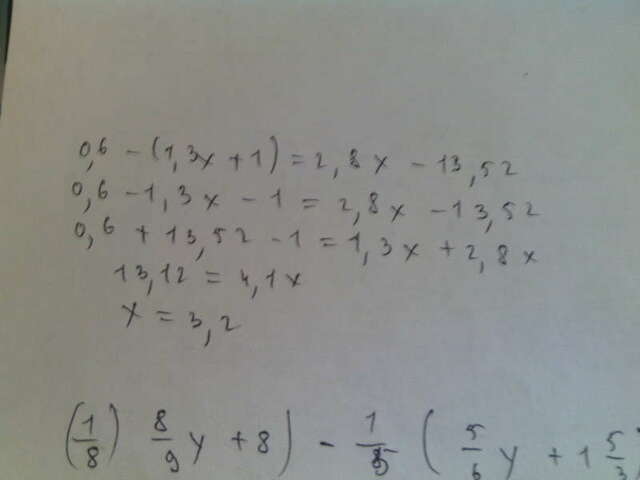 0,6 - (1,3x + 1) = 2,8x - 13,52
0,6 - 1,3x - 1 = 2,8x - 13,52
0,6 + 13,52 - 1 = 1,3x + 2,8x
13,12 = 4,1x
x = 3,2
(1/8) 8/9 y + 8) - 1/5 ( 5/6 y + 1 5/3